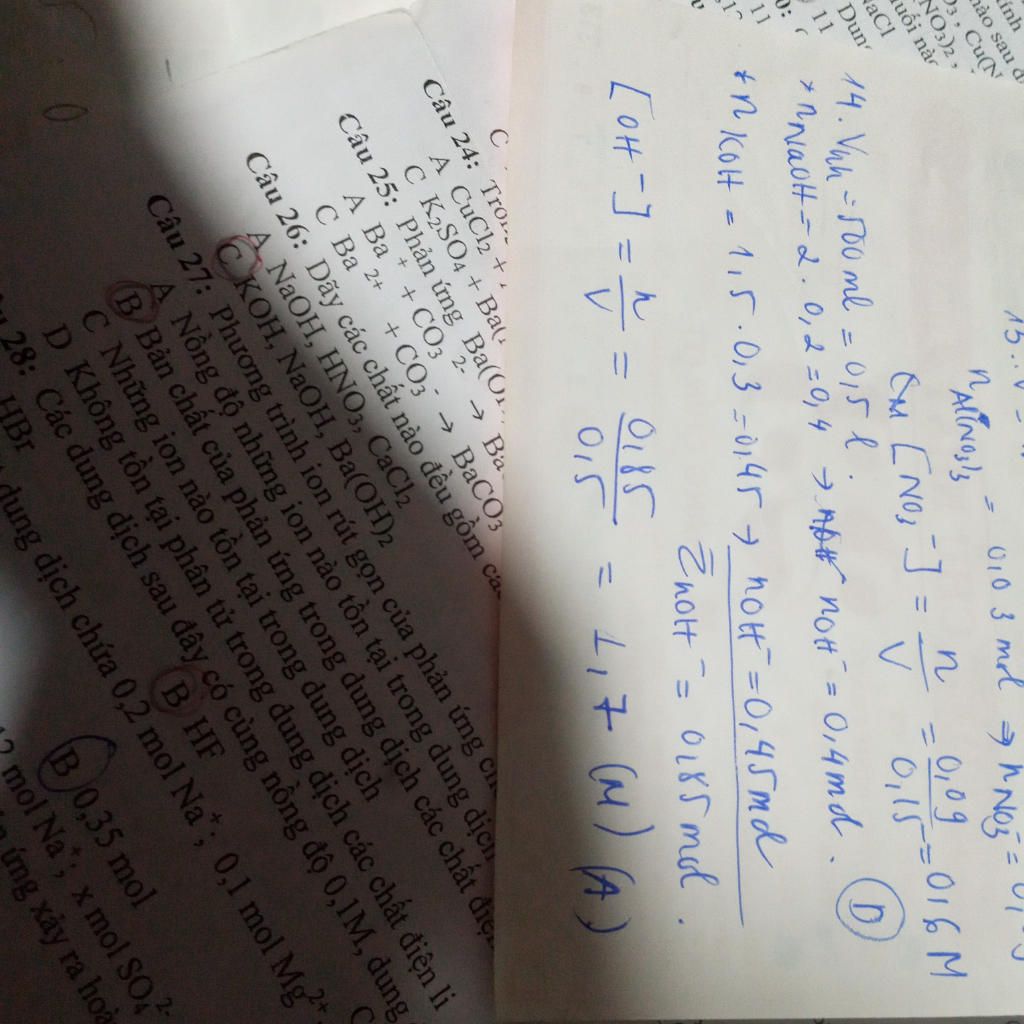 15.
nAl(NO₃)₃ = 0,03 mol ⇒ nNO₃⁻ =
CM [NO₃⁻] = n/V = 0,09/0,15 = 0,6 M
D
14. Vhh = 500 ml = 0,5 l.
* nNaOH = 2 . 0,2 = 0,4 → nOH⁻ = 0,4 mol.
* nKOH = 1,5 . 0,3 = 0,45 → nOH⁻ = 0,45 mol
ΣnOH⁻ = 0,85 mol.
[OH⁻] = n/V = 0,85/0,5 = 1,7 (M) (A)
C
Câu 24:
A CuCl₂ +
C K₂SO₄ +
Câu 25: Phản ứng
A Ba⁺ + CO₃²⁻ →
C Ba²⁺ + CO₃⁻ → BaCO₃
Câu 26: Dãy các chất nào đều gồm
A NaOH, HNO₃, CaCl₂
C KOH, NaOH, Ba(OH)₂
Câu 27: Phương trình ion rút gọn của phản ứng
A Nồng độ những ion nào tồn tại trong dung dịch
B Bản chất của phản ứng trong dung dịch các chất điện
C Những ion nào tồn tại trong dung dịch
D Không tồn tại phân tử trong dung dịch các chất điện li
28: Các dung dịch sau đây có cùng nồng độ 0,1M, dung
HBr
B HF
C
dung dịch chứa 0,2 mol Na⁺; 0,1 mol Mg²⁺
B 0,35 mol
mol Na⁺; x mol SO₄²⁻
ứng xảy ra